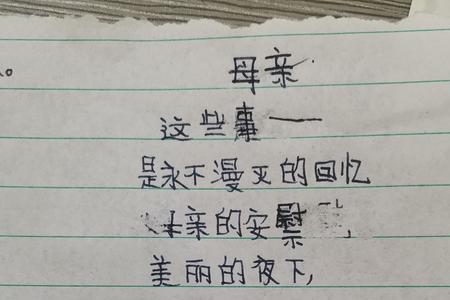 。
母亲
这些事——
是永不漫灭的回忆
亲的安慰,
美丽的夜下,